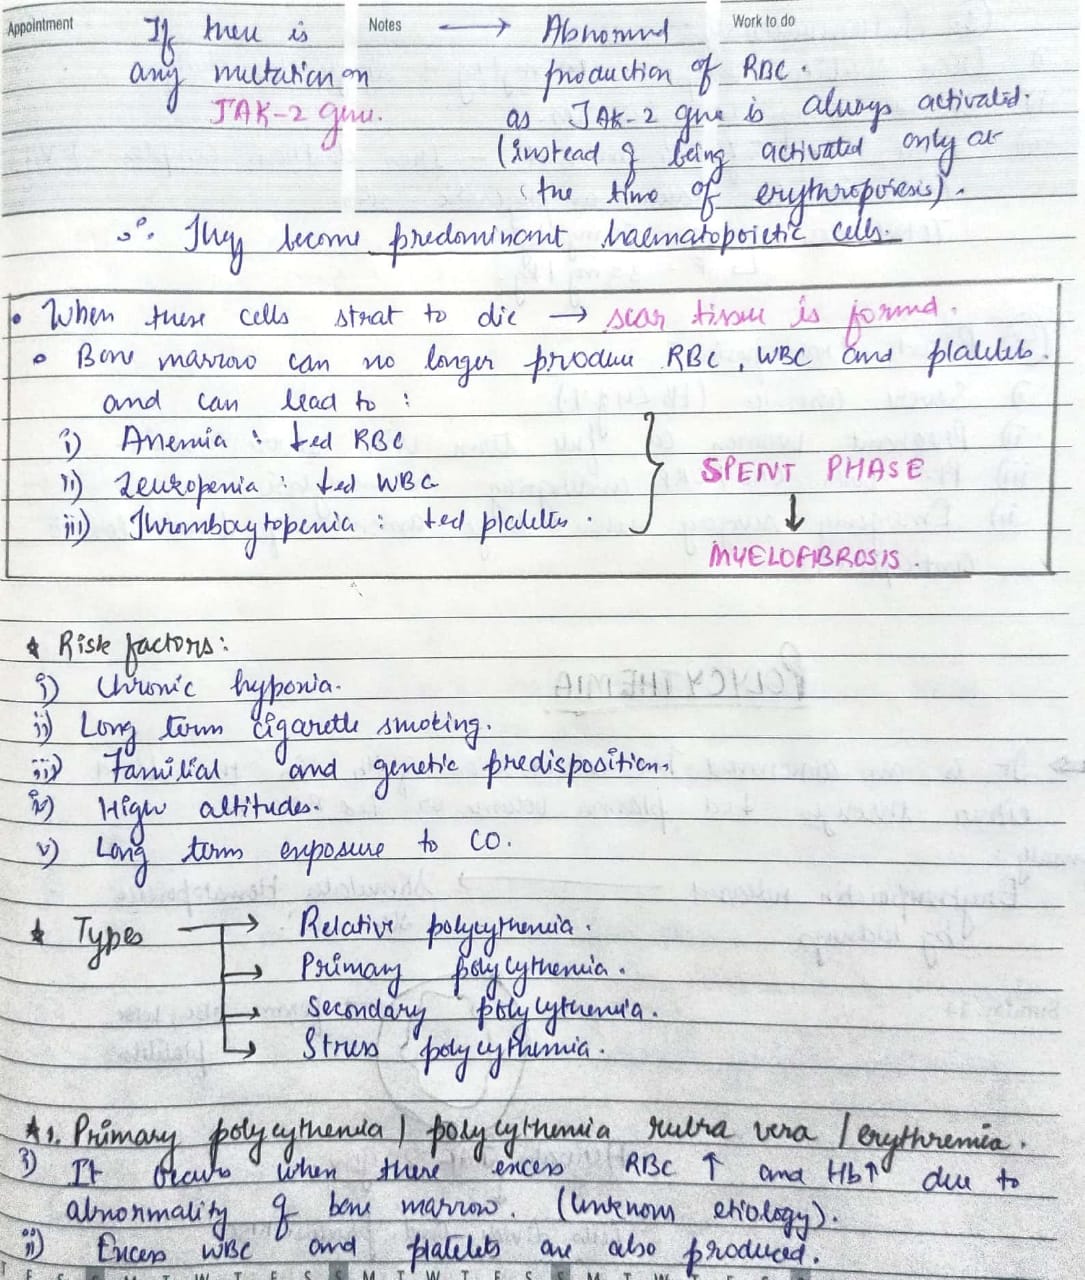 Appointment Notes Work to do
If there is → Abnormal
any mutation on production of RBC.
JAK-2 gene. as JAK-2 gne is always activated.
(instead of being activated only at
the time of erythropoiesis).
∴ They become predominant haematopoietic cells.
• When these cells strat to die → scar tissue is formed.
• Bone marrow can no longer produce RBC, WBC and platelets.
and can lead to :
i) Anemia : ↓ed RBC
ii) Leukopenia : ↓ed WBC
iii) Thrombocytopenia : ↓ed platelets.
SPENT PHASE
↓
MYELOFIBROSIS.
* Risk factors:
i) Chronic hypoxia.
ii) Long term cigarette smoking.
iii) Familial and genetic predisposition.
iv) High altitudes.
v) Long term exposure to CO.
* Types → Relative polycythemia.
→ Primary polycythemia.
→ Secondary polycythemia.
→ Stress polycythemia.
* 1. Primary polycythemia / polycythemia rubra vera / erythremia.
i) It occurs when there excess RBC ↑ and Hb↑ due to
abnormality of bone marrow. (Unknown etiology).
ii) Excess WBC and platelets are also produced.